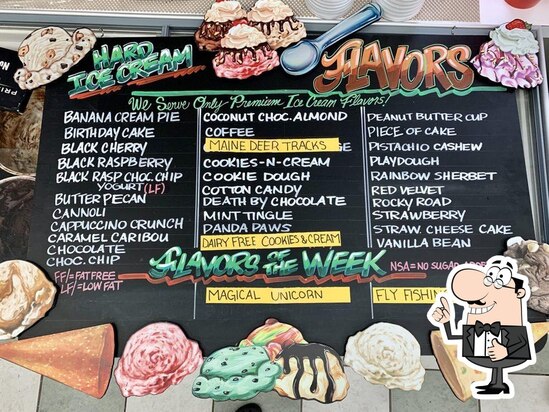 HARD
ICE CREAM
FLAVORS
We Serve Only Premium Ice Cream Flavors!
BANANA CREAM PIE
BIRTHDAY CAKE
BLACK CHERRY
BLACK RASPBERRY
BLACK RASP CHOC. CHIP
YOGURT (LF)
BUTTER PECAN
CANNOLI
CAPPUCCINO CRUNCH
CARAMEL CARIBOU
CHOCOLATE
CHOC. CHIP
FF/= FAT FREE
LF/= LOW FAT
COCONUT CHOC. ALMOND
COFFEE
MAINE DEER TRACKS
COOKIES-N-CREAM
COOKIE DOUGH
COTTON CANDY
DEATH BY CHOCOLATE
MINT TINGLE
PANDA PAWS
DAIRY FREE COOKIES & CREAM
PEANUT BUTTER CUP
PIECE OF CAKE
PISTACHIO CASHEW
PLAYDOUGH
RAINBOW SHERBET
RED VELVET
ROCKY ROAD
STRAWBERRY
STRAW. CHEESE CAKE
VANILLA BEAN
NSA = NO SUGAR
FLAVORS OF THE WEEK
MAGICAL UNICORN
FLY FISHIN